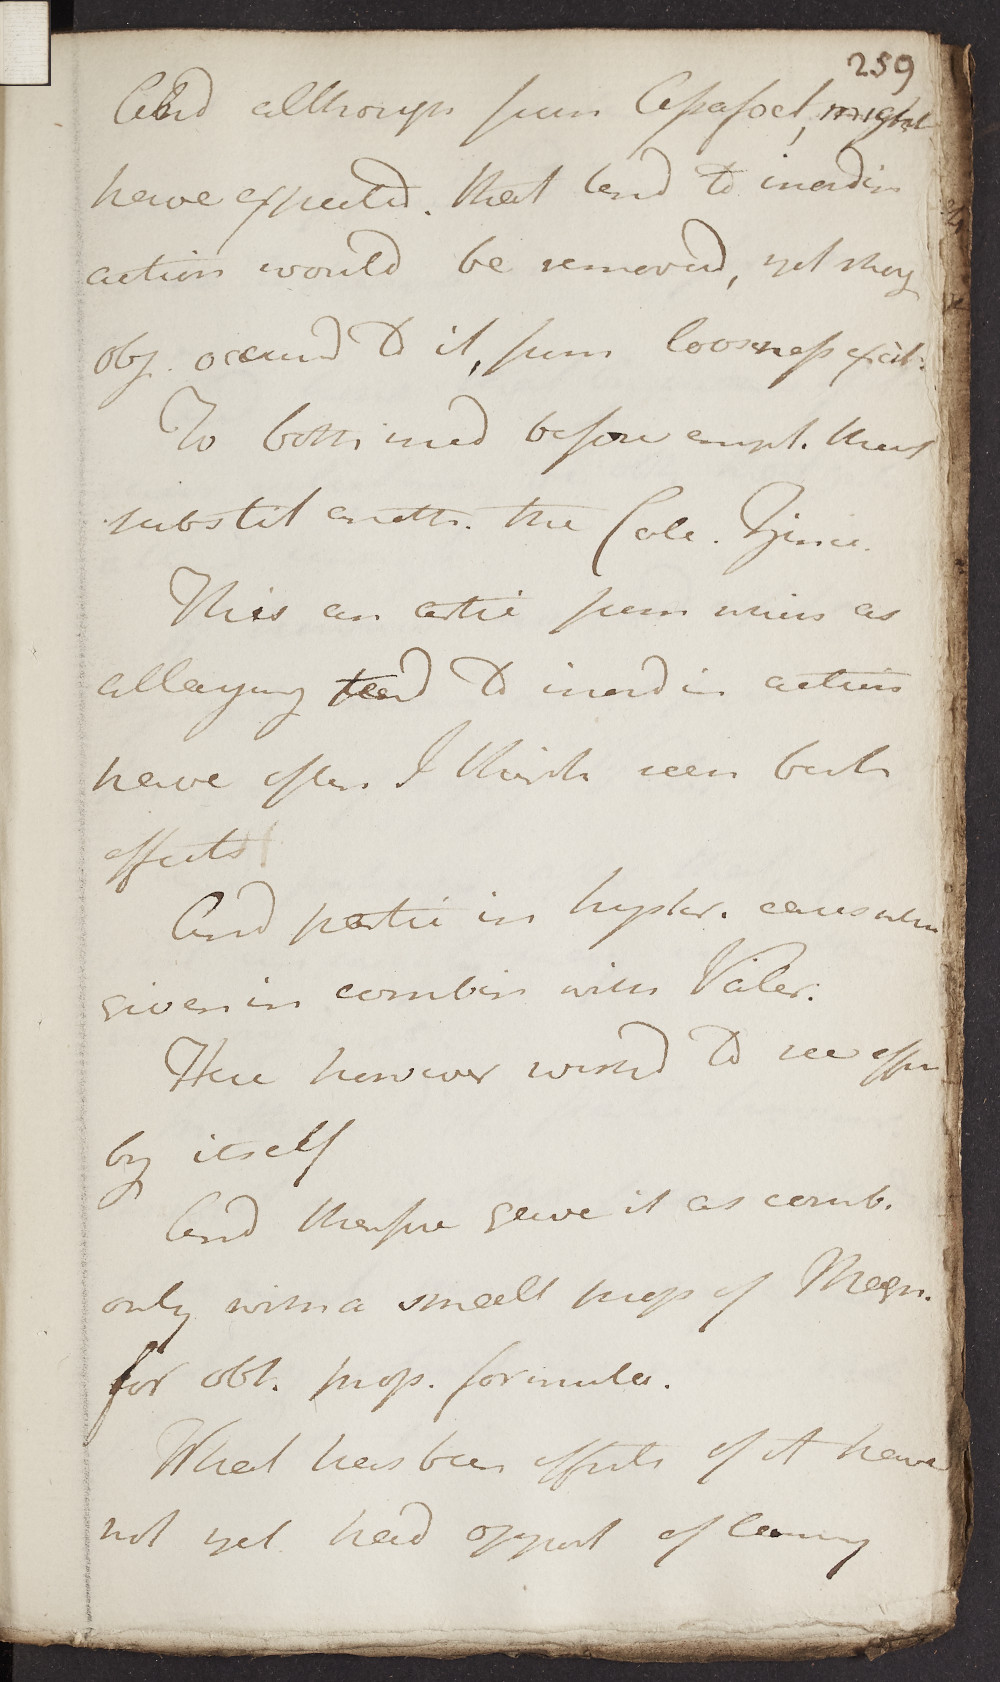 259
And although from Asafoet, might
have expected. that tend to inordin
action would be removed, yet strong
obj. occurred to it, from looseness exist.
To both in med before empl. have
substit anoth. the Calx. Zinci.
This an artic from which as
allaying tend to inordin action
have often I think seen best
effects
And partic in hyster. cases when
given in combin with Valer.
Here however wished to see effec
by itself
And therefore gave it as comb.
only with a small prop of Magn.
for obt. prop. formula.
What has been effects of it have
not yet had opport of learning